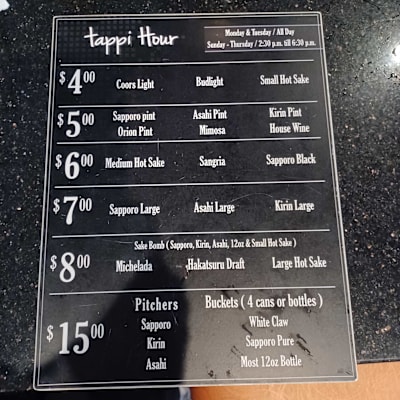 tappi Hour
Monday & Tuesday / All Day
Sunday - Thursday / 2:30 p.m. till 6:30 p.m.
$4.00 Coors Light Budlight Small Hot Sake
$5.00 Sapporo pint Asahi Pint Kirin Pint
Orion Pint Mimosa House Wine
$6.00 Medium Hot Sake Sangria Sapporo Black
$7.00 Sapporo Large Asahi Large Kirin Large
Sake Bomb ( Sapporo, Kirin, Asahi, 12oz & Small Hot Sake )
$8.00 Michelada Hakatsuru Draft Large Hot Sake
Pitchers Buckets ( 4 cans or bottles )
$15.00 Sapporo White Claw
Kirin Sapporo Pure
Asahi Most 12oz Bottle